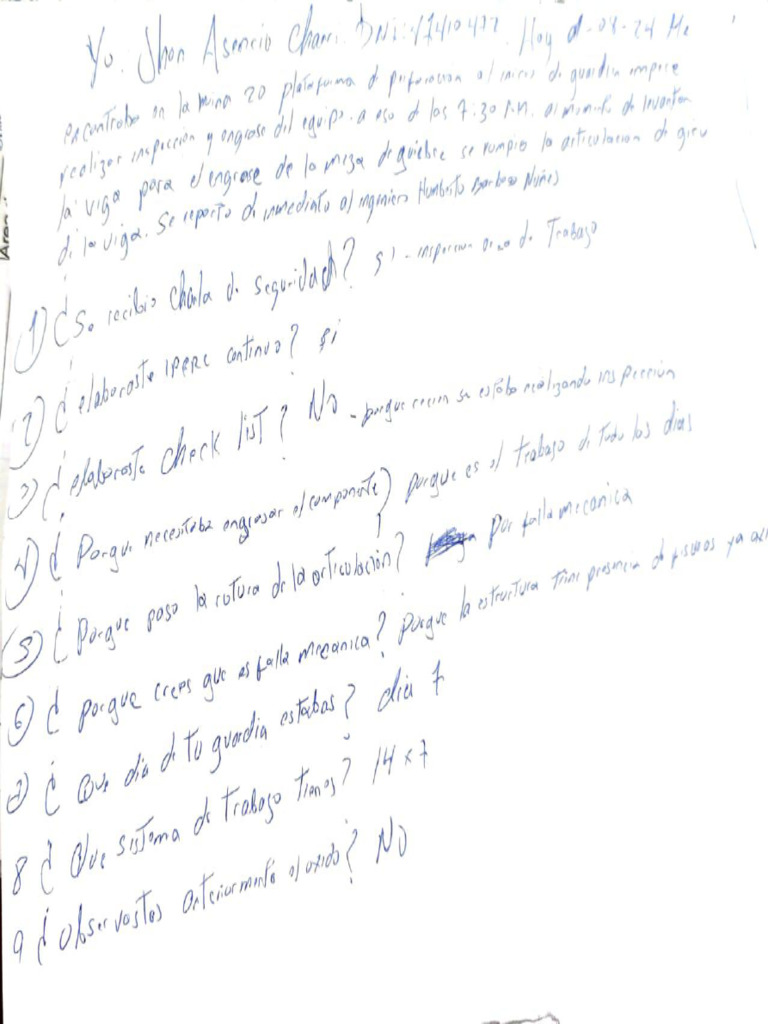 Yo. Jhon Asencio Chani. DNI: 47410477. Hoy d -08-24 Me
encontraba en la mina 20 plataforma d perforación al inicio d guardia empece
realizar inspección y engrase del equipo. a eso d las 7.30 P.M. al momento de levantar
la viga para el engrase de la meza de quiebre se rumpio la articulacion de giro
di la viga. Se reporto di inmediato al ingeniero Humberto Barboza Nuñes
1) ¿Se recibio charla de seguridad? si - inspeccion area de Trabajo
2) ¿elaboraste IPERC continuo? si
3) ¿elaboraste check list? No - porque recien se estaba realizando inspección
4) ¿Porque necesitaba engrasar el componente) porque es el trabajo di todo los dias
5) ¿Porque paso la rotura de la articulación? Por falla mecanica
6) ¿porque crees que es falla mecanica? porque la estructura tiene presencia de fisuras ya
7) ¿Que dia di tu guardia estabas? dia 7
8 ¿Que sistema de trabajo tienes? 14 x 7
9 ¿Observastes anteriormente el oxido? No